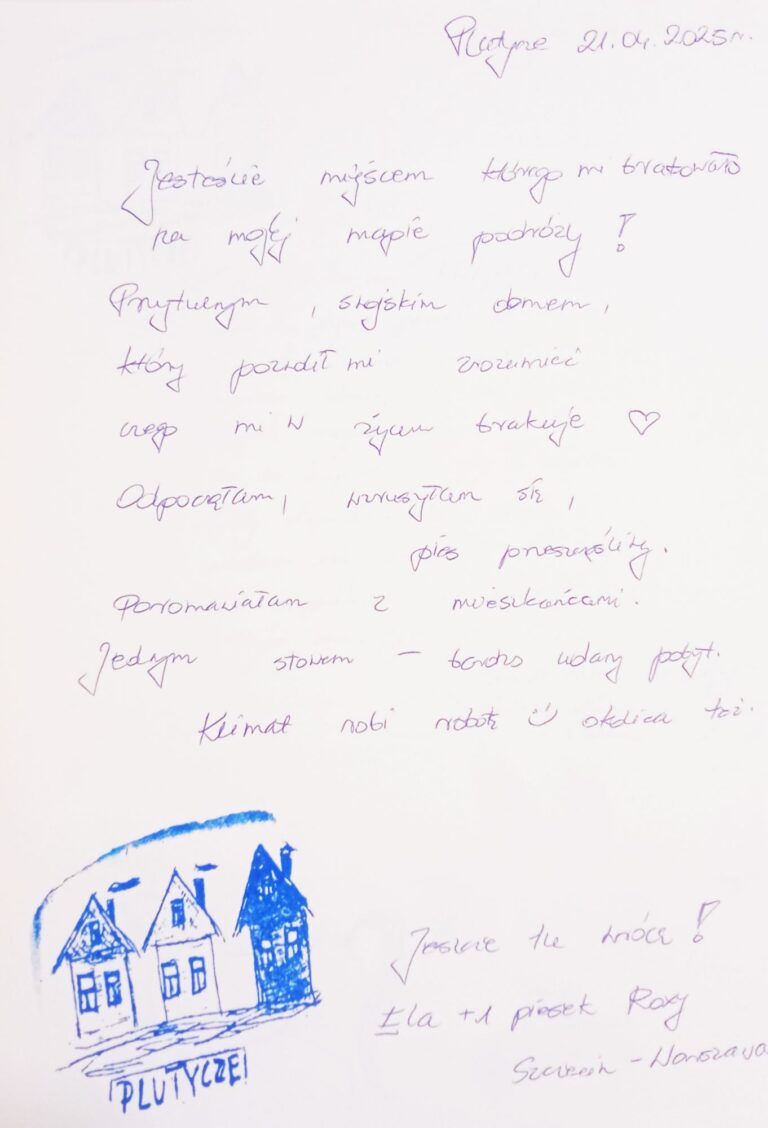 Plutycze 21.04.2025r.
Jesteście miejscem którego mi brakowało
na mojej mapie podróży!
Przytulnym, swojskim domem,
który pozwolił mi zrozumieć
czego mi w życiu brakuje ♡
Odpoczęłam, wzruszyłam się,
pies przeszczęśliwy.
Porozmawiałam z mieszkańcami.
Jednym słowem – bardzo udany pobyt.
Klimat robi robotę ☺ okolica też.
Jeszcze tu wrócę!
Ela +1 piesek Roxy
Szczecin - Warszawa
PLUTYCZE